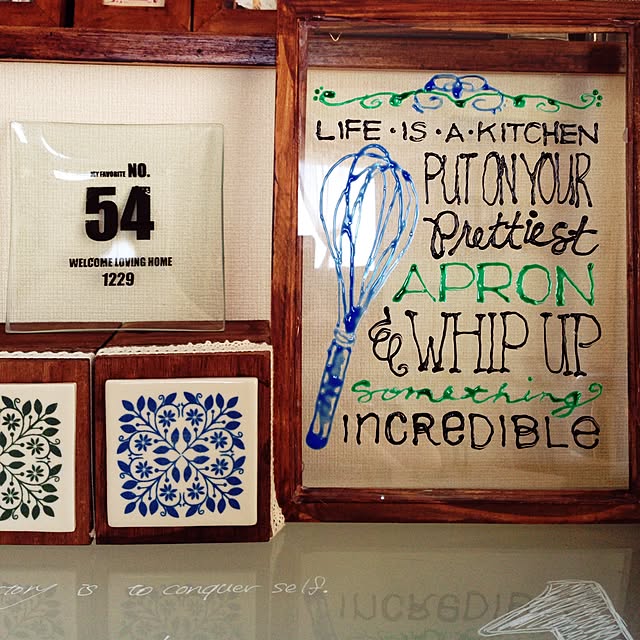 MY FAVORITE NO.
54
WELCOME LOVING HOME
1229
LIFE · IS · A · KITCHEN
PUT ON YOUR
Prettiest
APRON
& WHIP UP
something
INCREDIBLE
is to conquer self.